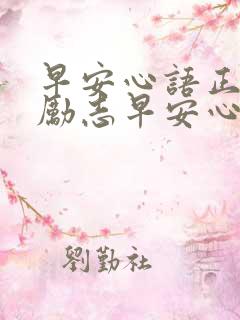 早安心語正
勵志早安心
劉勤社